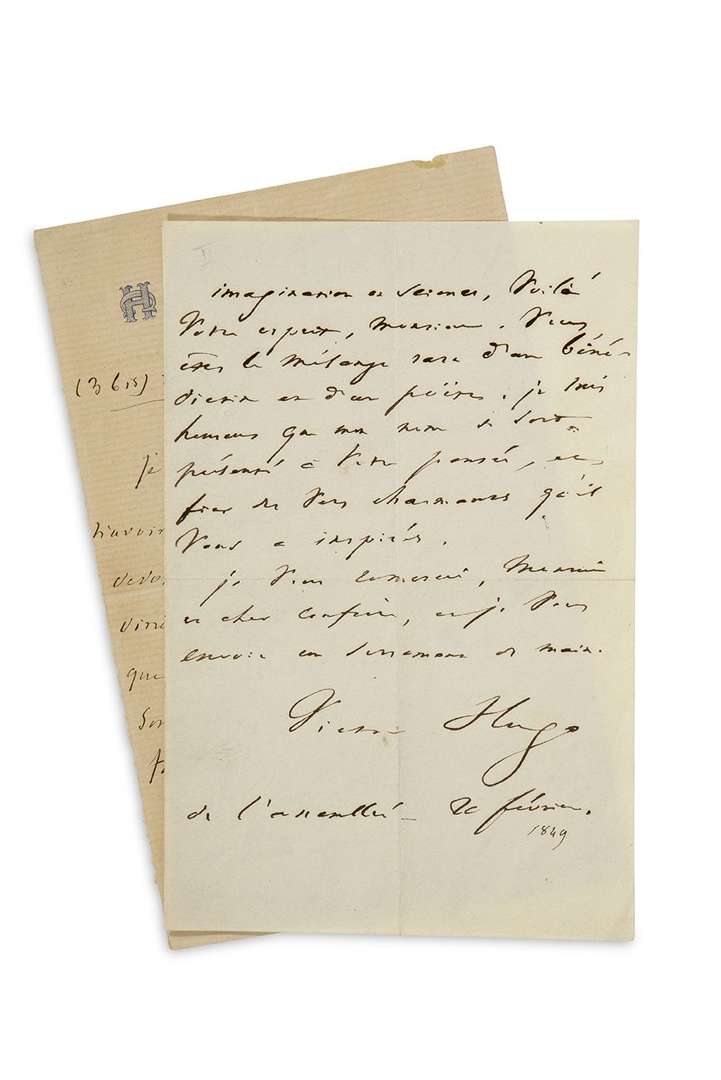 imagination et science, Voilà
Votre esprit, monsieur. Vous
êtes le mélange rare d'un béné-
dictin et d'un poëte. je suis
heureux que mon nom se soit
présenté à Votre pensée, et
fier des Vers charmants qu'il
Vous a inspirés.
je Vous remercie, Monsieur
et cher confrère, et je Vous
envoie un serrement de main.
Victor Hugo
de l'assemblée – 20 février.
1849
(3 bis)
je
n'avoir
devo
que